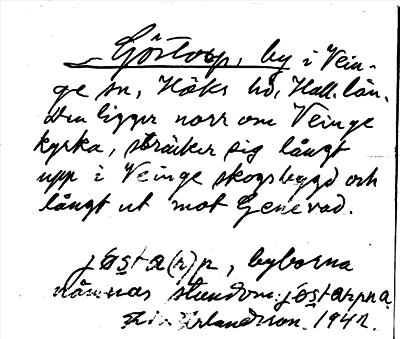 Göstorp, by i Vein-
ge sn, Höks hd, Hall. län.
Den ligger norr om Veinge
kyrka, sträcker sig långt
upp i Veinge skogsbygd och
långt ut mot Genevad.
jøsta(r)p, byborna
nämnas stundom jøstarpna.
Erlandsson. 1942.